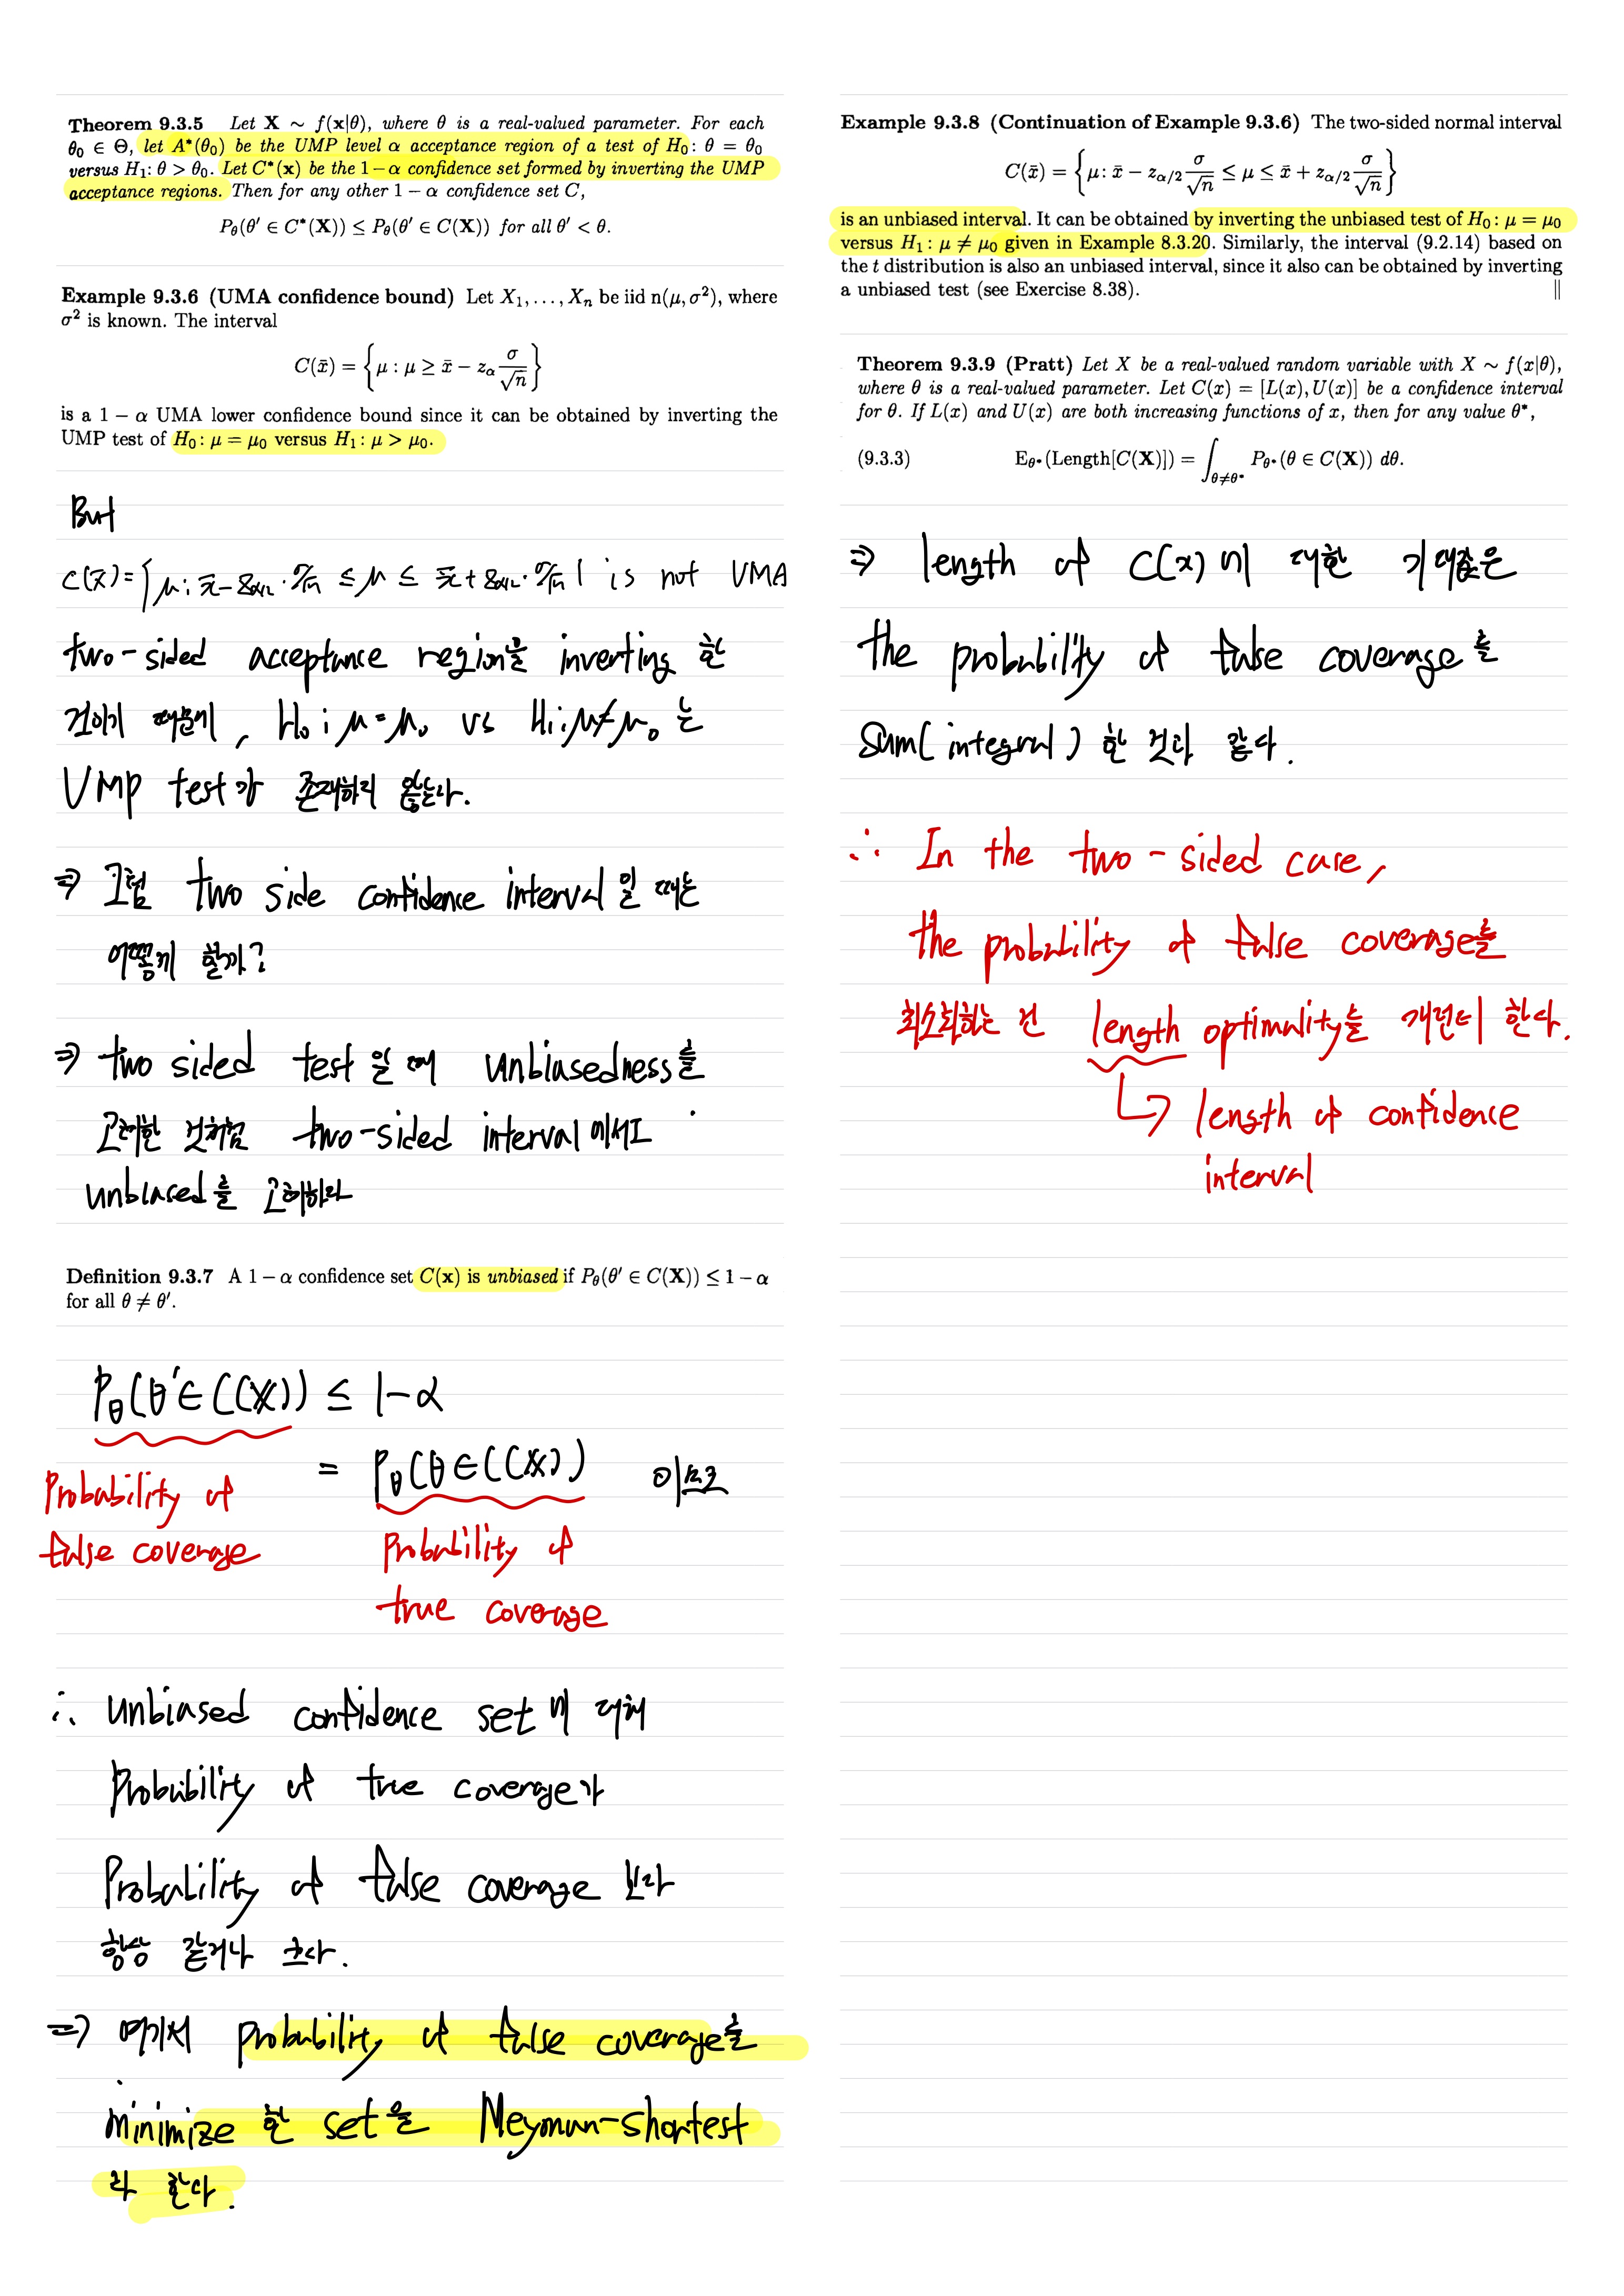 Theorem 9.3.5 Let X ~ f(x|θ), where θ is a real-valued parameter. For each
θ₀ ∈ Θ, let A*(θ₀) be the UMP level α acceptance region of a test of H₀: θ = θ₀
versus H₁: θ > θ₀. Let C*(x) be the 1 − α confidence set formed by inverting the UMP
acceptance regions. Then for any other 1 − α confidence set C,
P_θ(θ′ ∈ C*(X)) ≤ P_θ(θ′ ∈ C(X)) for all θ′ < θ.
Example 9.3.6 (UMA confidence bound) Let X₁, . . . , Xₙ be iid n(μ, σ²), where
σ² is known. The interval
C(x̄) = {μ : μ ≥ x̄ − z_α σ/√n}
is a 1 − α UMA lower confidence bound since it can be obtained by inverting the
UMP test of H₀: μ = μ₀ versus H₁: μ > μ₀.
But
C(x̄) = {μ : x̄ − z_{α/2} · σ/√n ≤ μ ≤ x̄ + z_{α/2} · σ/√n} is not UMA
two-sided acceptance region을 inverting 한
것이기 때문에, H₀ : μ = μ₀ vs H₁ : μ ≠ μ₀ 는
UMP test가 존재하지 않는다.
⇒ 그럼 two side confidence interval 일 때는
어떻게 할까?
⇒ two sided test 일 때 unbiasedness를
고려한 것처럼 two-sided interval 에서도
unbiased를 고려하라
Definition 9.3.7 A 1 − α confidence set C(x) is unbiased if P_θ(θ′ ∈ C(X)) ≤ 1 − α
for all θ ≠ θ′.
P_θ(θ′ ∈ C(X)) ≤ 1 − α
= P_θ(θ ∈ C(X)) 이므로
Probability of
false coverage
Probability of
true coverage
∴ Unbiased confidence set 에 대해
Probability of true coverage가
Probability of false coverage 보다
항상 같거나 크다.
⇒ 여기서 probability of false coverage를
minimize 한 set을 Neyman-shortest
라 한다.
Example 9.3.8 (Continuation of Example 9.3.6) The two-sided normal interval
C(x̄) = {μ: x̄ − z_{α/2} σ/√n ≤ μ ≤ x̄ + z_{α/2} σ/√n}
is an unbiased interval. It can be obtained by inverting the unbiased test of H₀: μ = μ₀
versus H₁: μ ≠ μ₀ given in Example 8.3.20. Similarly, the interval (9.2.14) based on
the t distribution is also an unbiased interval, since it also can be obtained by inverting
a unbiased test (see Exercise 8.38). ‖
Theorem 9.3.9 (Pratt) Let X be a real-valued random variable with X ~ f(x|θ),
where θ is a real-valued parameter. Let C(x) = [L(x), U(x)] be a confidence interval
for θ. If L(x) and U(x) are both increasing functions of x, then for any value θ*,
(9.3.3) E_θ*(Length[C(X)]) = ∫_{θ≠θ*} P_θ*(θ ∈ C(X)) dθ.
⇒ length of C(x) 에 대한 기대값은
the probability of false coverage를
Sum(integral) 한 것과 같다.
∴ In the two-sided case,
the probability of false coverage를
최소화하는 건 length optimality를 개런티 한다.
length of confidence
interval